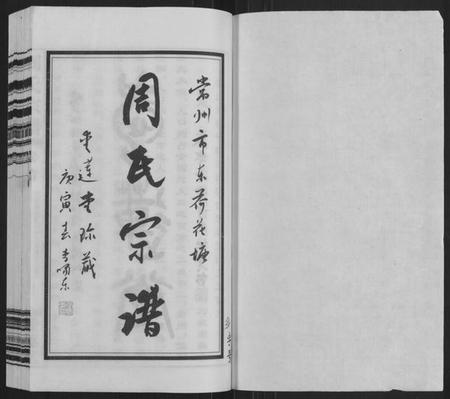 常州市东荷花塘
周氏宗谱
爱莲堂珍藏
庚寅春李啸东